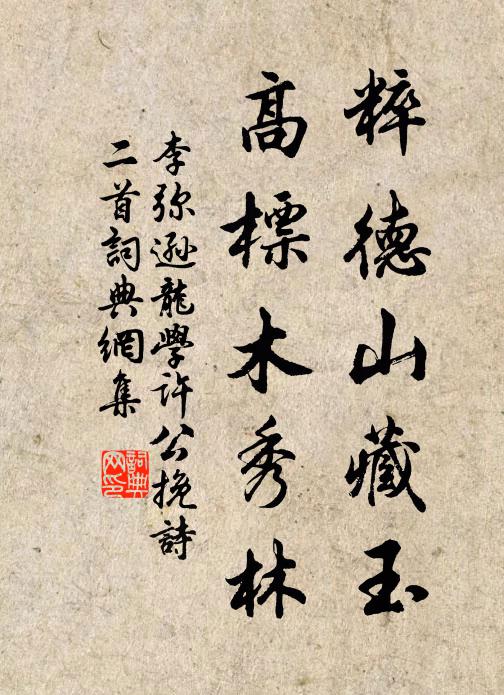 粹德山藏玉
高標木秀林
李弥遜龍學許公挽詩
二首詞典網集
詞典
网印